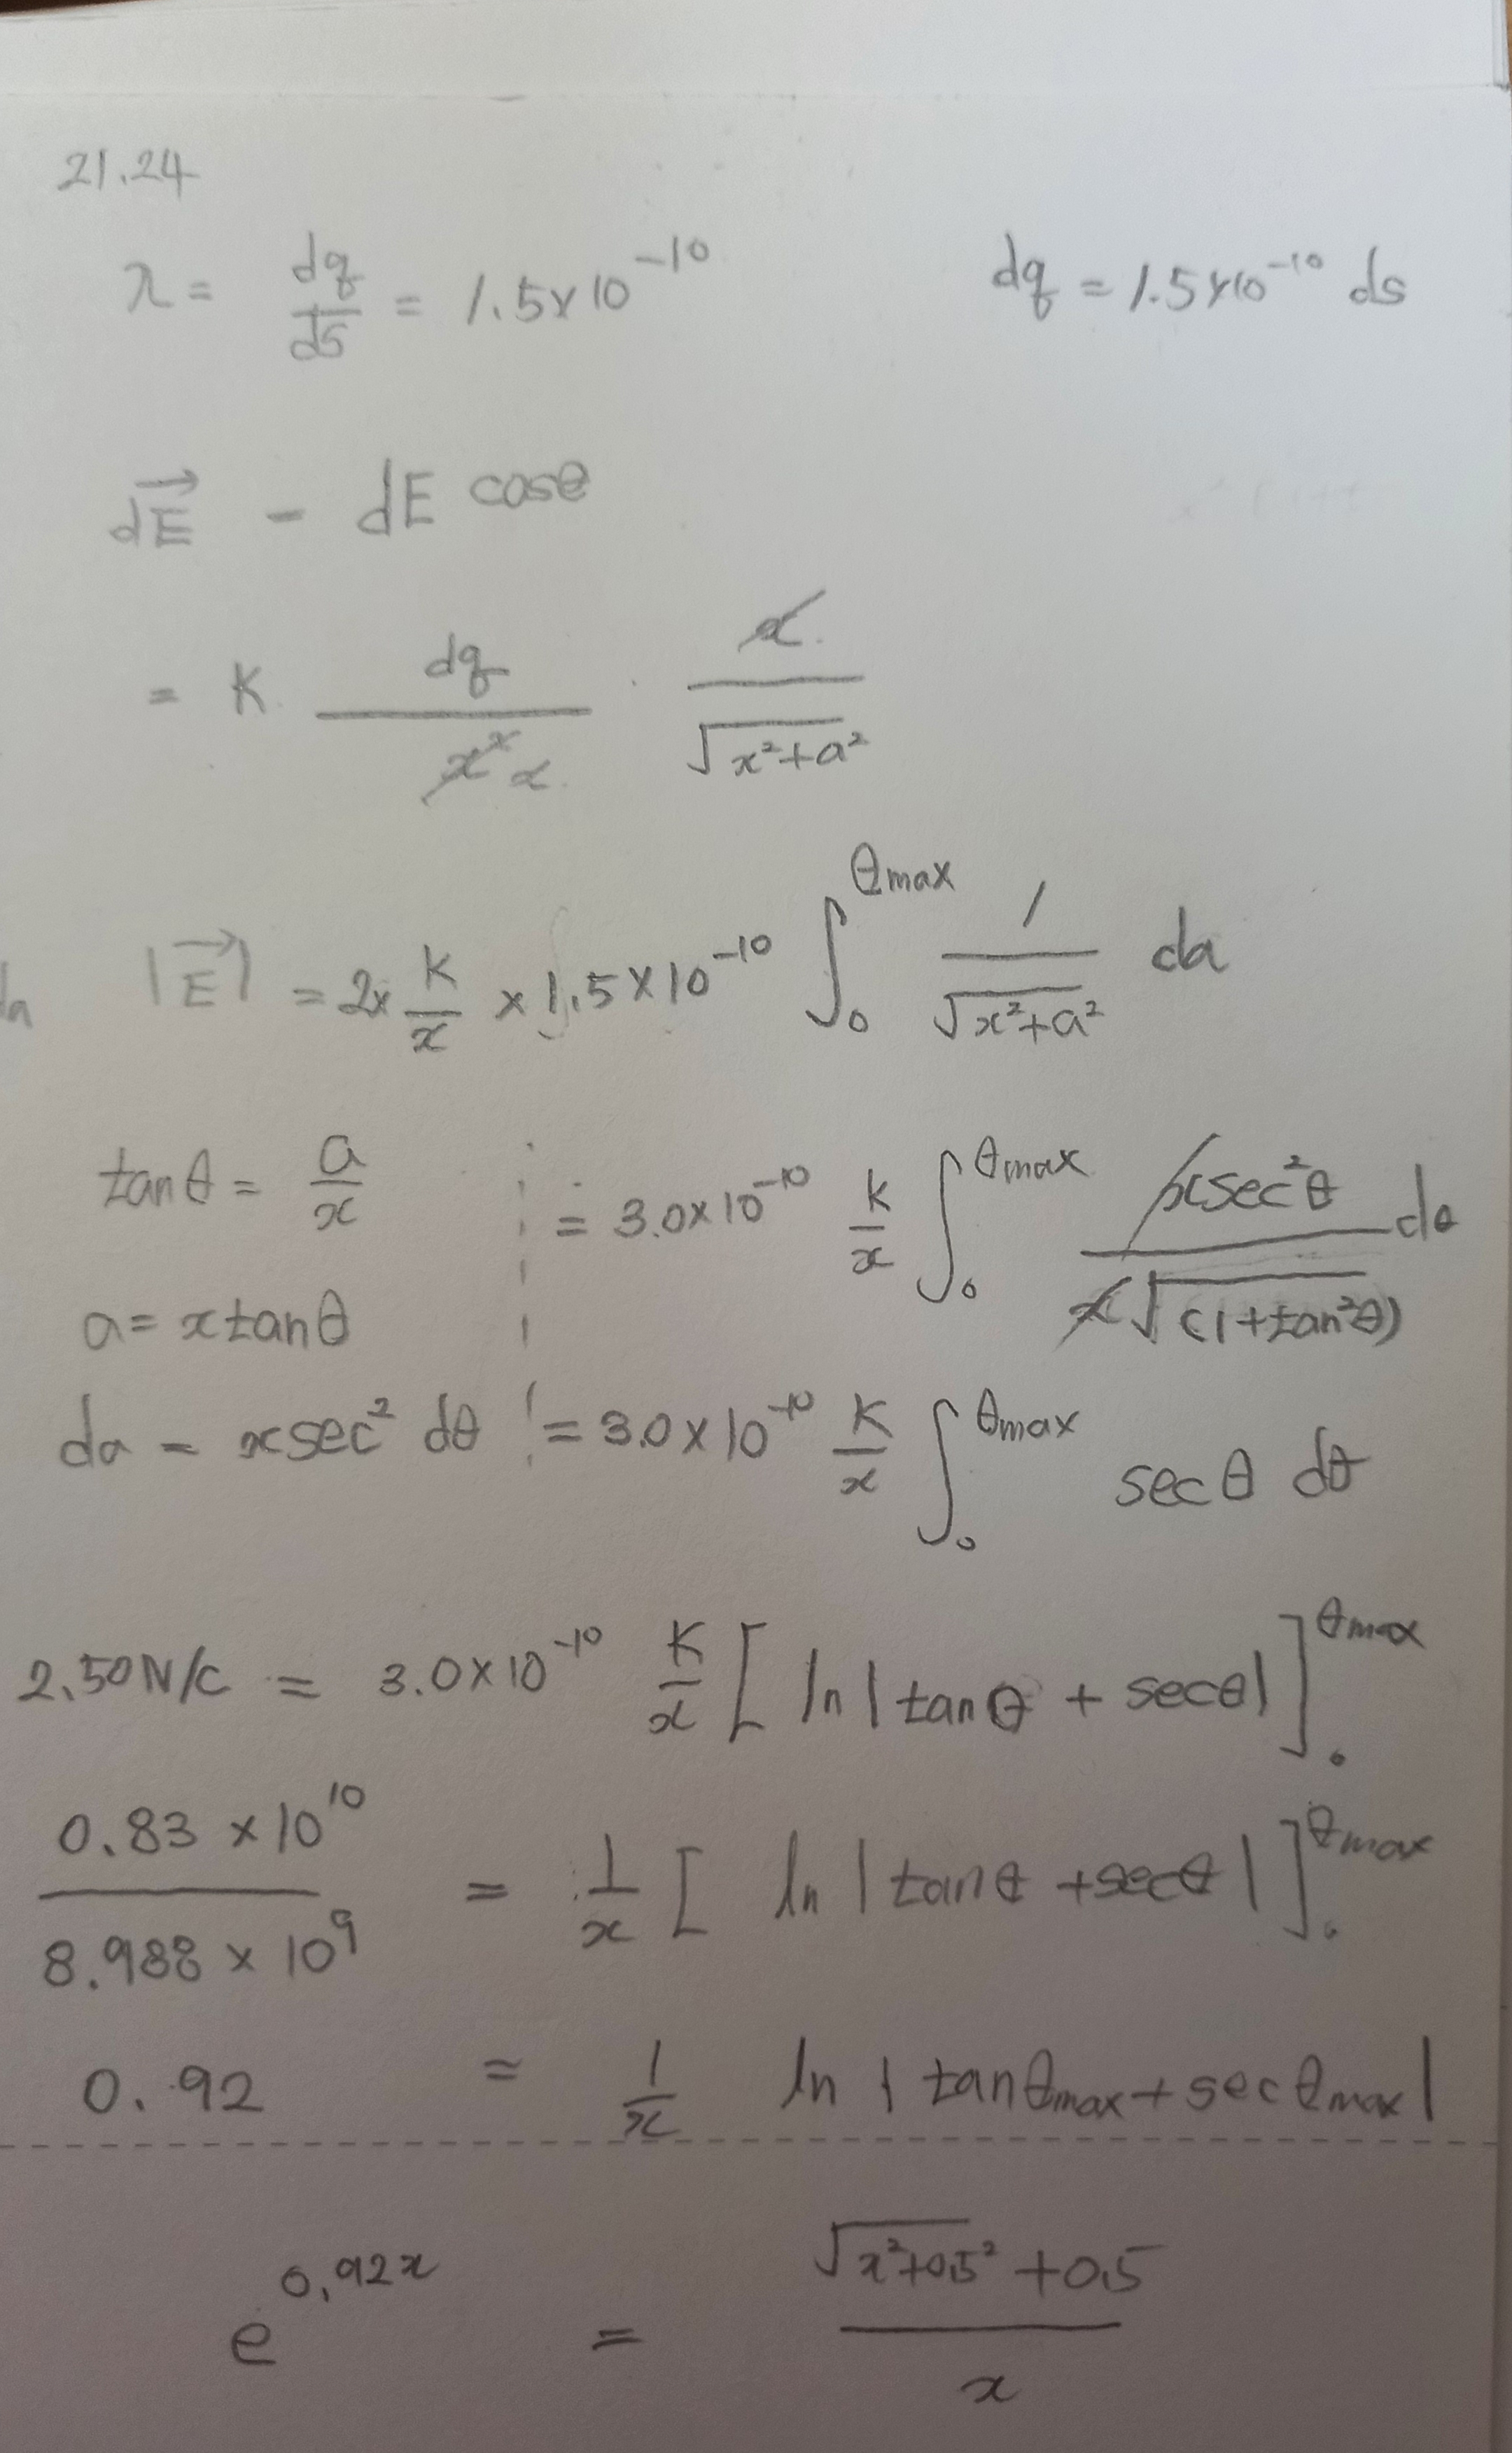 21.24
λ = dq/ds = 1.5×10^-10    dq = 1.5×10^-10 ds
dE⃗ = dE cosθ
= K dq/x² x · x/√x²+a²
|E⃗| = 2× K/x × 1.5×10^-10 ∫₀^θmax 1/√x²+a² da
tanθ = a/x    = 3.0×10^-10 K/x ∫₀^θmax xsec²θ/x√(1+tan²θ) dθ
a = xtanθ
da = xsec² dθ    = 3.0×10^-10 K/x ∫₀^θmax secθ dθ
2.50N/C = 3.0×10^-10 K/x [ ln|tanθ + secθ| ]₀^θmax
0.83×10^10/8.988×10^9 = 1/x [ ln|tanθ + secθ| ]₀^θmax
0.92 = 1/x ln|tanθmax + secθmax|
e^0.92x = √x²+0.5² + 0.5/x